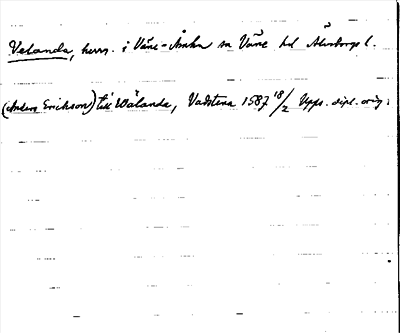 Velanda, herrg. i Väne-Åsaka sn Väne hd Älvsborgs l.
(Anders Erikson) till Wälanda, Vadstena 1587 18/2 Upps. dipl. orig.